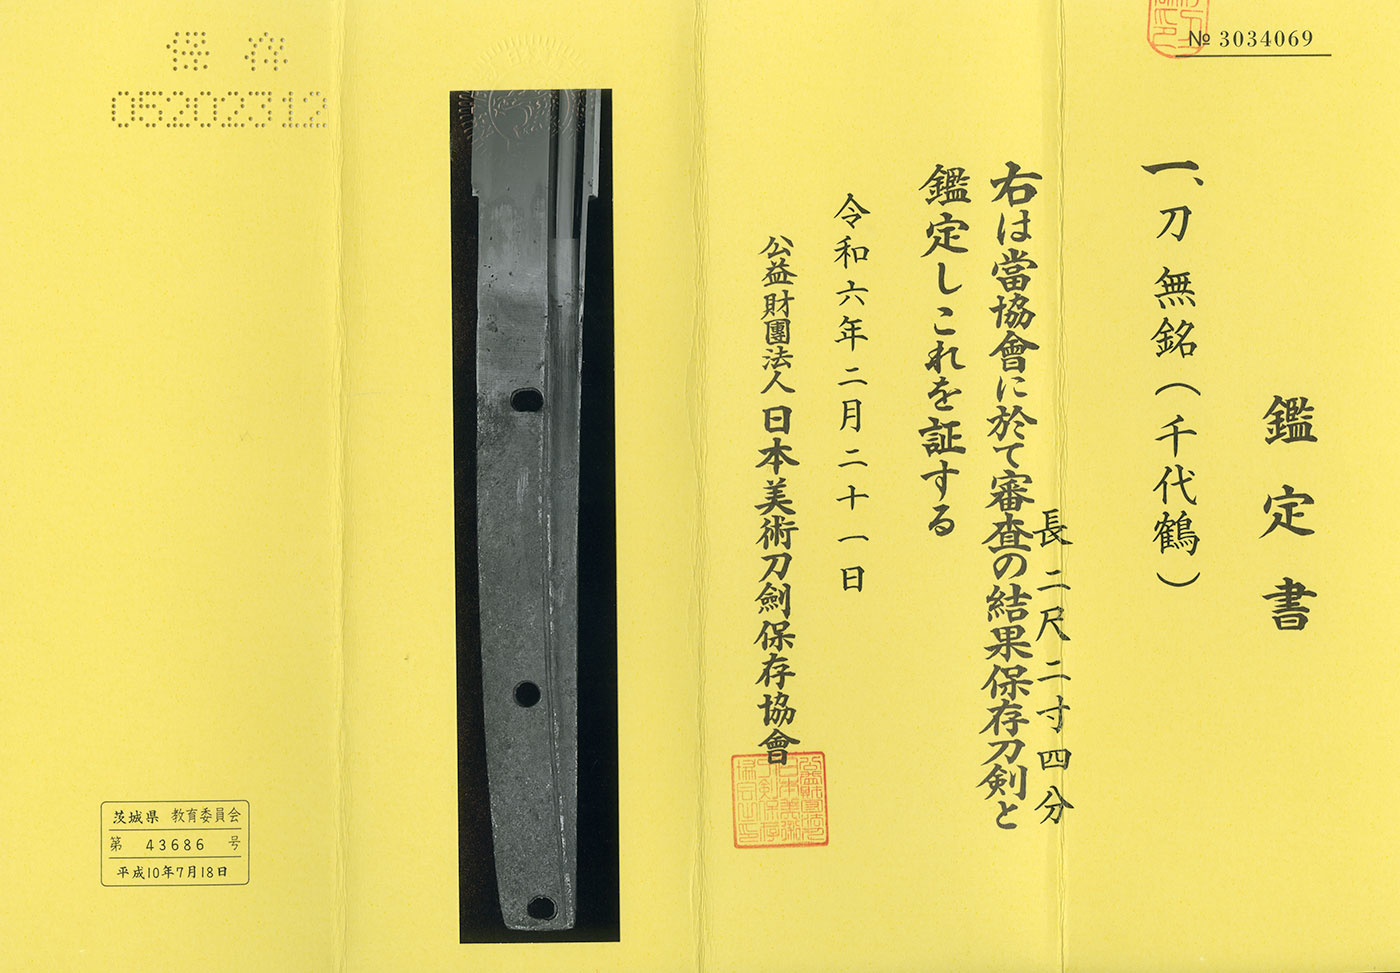 № 3034069
鑑定書
一、刀 無銘（千代鶴）
長 二尺二寸四分
右は當協會に於て審査の結果保存刀剣と
鑑定しこれを証する
令和六年二月二十一日
公益財團法人 日本美術刀劍保存協會
保存
05202312
茨城県 教育委員会
第 43686 号
平成10年7月18日